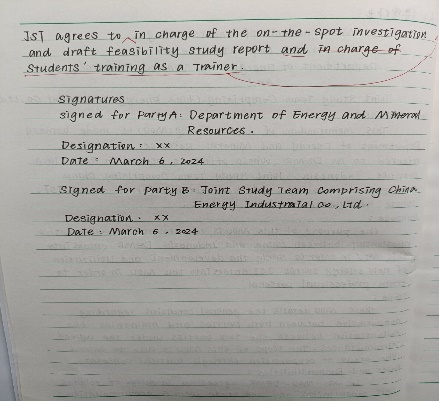 JST agrees to in charge of the on-the-spot investigation
and draft feasibility study report and in charge of
Students' training as a Trainer.
Signatures
signed for Party A: Department of Energy and Mineral
Resources.
Designation: xx
Date: March 6, 2024
Signed for party B: Joint Study Team Comprising China
Energy Industraial Co., Ltd.
Designation: xx
Date: March 6, 2024